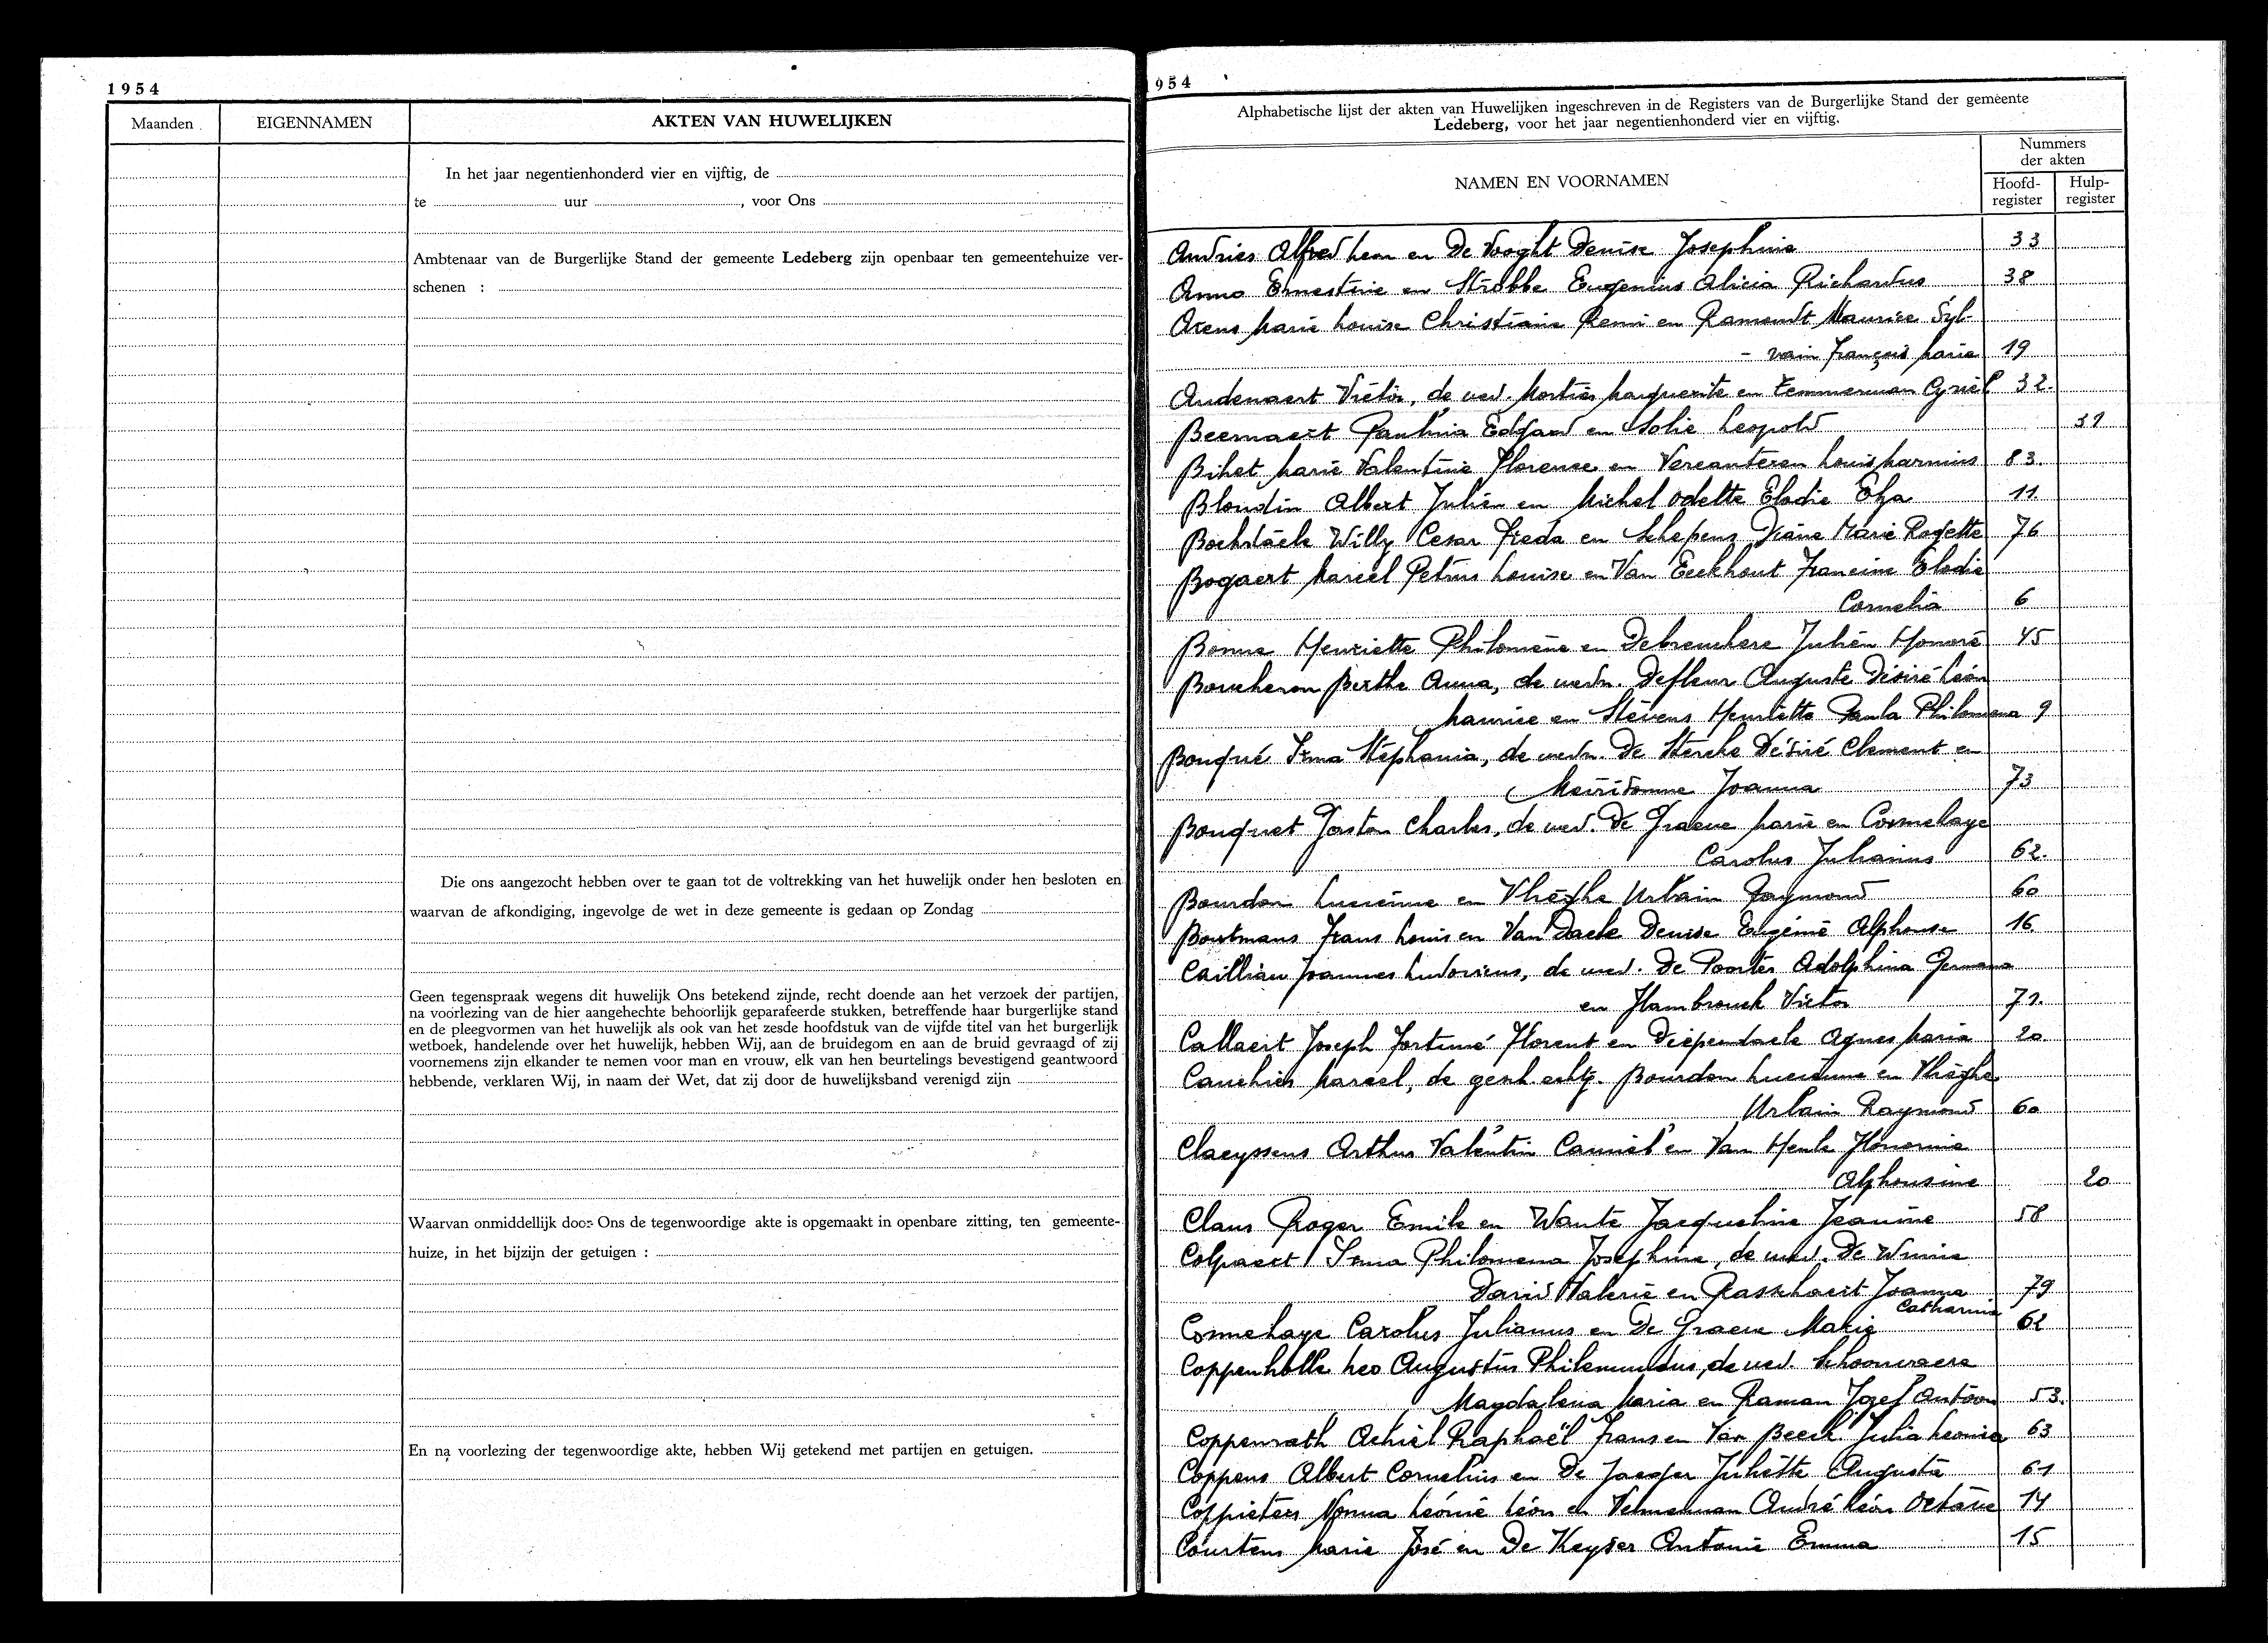 1954
Maanden
EIGENNAMEN
AKTEN VAN HUWELIJKEN
In het jaar negentienhonderd vier en vijftig, de
te uur , voor Ons
Ambtenaar van de Burgerlijke Stand der gemeente Ledeberg zijn openbaar ten gemeentehuize ver-
schenen :
Die ons aangezocht hebben over te gaan tot de voltrekking van het huwelijk onder hen besloten en
waarvan de afkondiging, ingevolge de wet in deze gemeente is gedaan op Zondag
Geen tegenspraak wegens dit huwelijk Ons betekend zijnde, recht doende aan het verzoek der partijen,
na voorlezing van de hier aangehechte behoorlijk geparafeerde stukken, betreffende haar burgerlijke stand
en de pleegvormen van het huwelijk als ook van het zesde hoofdstuk van de vijfde titel van het burgerlijk
wetboek, handelende over het huwelijk, hebben Wij, aan de bruidegom en aan de bruid gevraagd of zij
voornemens zijn elkander te nemen voor man en vrouw, elk van hen beurtelings bevestigend geantwoord
hebbende, verklaren Wij, in naam der Wet, dat zij door de huwelijksband verenigd zijn
Waarvan onmiddellijk door Ons de tegenwoordige akte is opgemaakt in openbare zitting, ten gemeente-
huize, in het bijzijn der getuigen :
En na voorlezing der tegenwoordige akte, hebben Wij getekend met partijen en getuigen.
954
Alphabetische lijst der akten van Huwelijken ingeschreven in de Registers van de Burgerlijke Stand der gemeente
Ledeberg, voor het jaar negentienhonderd vier en vijftig.
NAMEN EN VOORNAMEN
Nummers
der akten
Hoofd-
register
Hulp-
register
Andries Alfred Leon en De Vooght Denise Josephine 33
Anno Ernestine en Strobbe Eugenius Alicia Richardus 38
Arens Marie Louise Christiane Remi en Ramondt Maurice Syl-
- vain François Marie 19
Audenaert Victor, de wed. Mortier Marguerite en Temmerman Cyriel 32.
Beernaert Paulina Edgard en Solie Leopold
Bihet Marie Valentine Florence en Vercauteren Louis 83.
Blondin Albert Julien en Michel Odette Elodie Elza 11.
Bockstaele Willy Cesar Freda en Schepens Diane Marie Rogette 76
Bogaert Marcel Petrus Louise en Van Eeckhout Francine Elodie
Cornelia 6
Bonne Henriette Philomène en Debreuckere Julien Honoré 45
Boucheron Berthe Anna, de wedn. Defleur Auguste Désiré Léon
Maurice en Stevens Henriette Paula Philomena 9
Bouqué Irma Stephania, de wedn. De Stercke Désiré Clement en
Meirsonne Joanna 73
Bouquet Gaston Charles, de wed. De Graeve Marie en Connehaye
Carolus Julianus 62.
Bourdon Lucienne en Vlieghe Urbain Raymond 60
Boutmans Frans Louis en Van Daele Denise Eugénie Alphonse 16
Cailliau Joannes Ludovicus, de wed. De Poorter Adolphina Germana
en Hambrouck Victor 71.
Callaert Joseph Fortuné Florent en Diependaele Agnes Maria 20
Cauchies Marcel, de gesch. echtg. Bourdon Lucienne en Vlieghe
Urbain Raymond 60
Claeyssens Arthur Valentin Camiel en Van Heule Honorine
Alphonsine 20
Claus Roger Emile en Wante Jacqueline Jeanine 58
Colpaert Irma Philomena Josephine, de wed. De Winne
David Valerie en Rasschaert Joanna 79
Catharina
Connehaye Carolus Julianus en De Graeve Marie 62
Coppenholle Leo Augustus Philemundus, de wed. Schoonvaere
Magdalena Maria en Raman Jozef Antoon 53.
Coppenrath Achiel Raphaël Frans en Van Beeck Julia Leonia 63
Coppens Albert Cornelius en De Jaeger Juliette Augusta 61
Coppieters Norma Léonie Léon en Velneman André Léon Octave 14
Courtens Marie José en De Keyser Antonie Emma 15